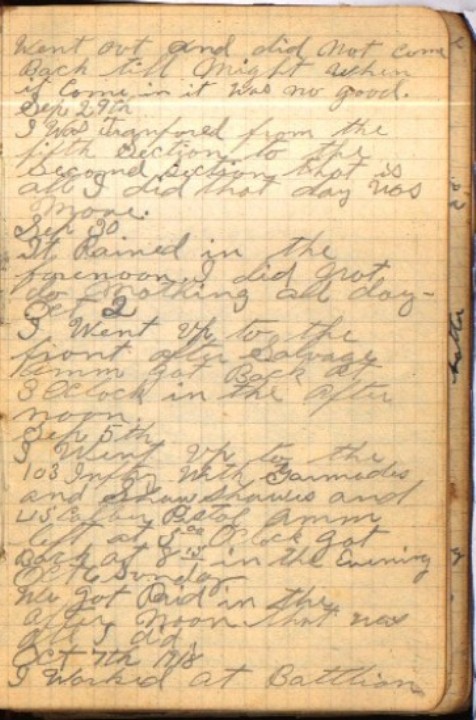 Went out and did not come
Back till Might when
it Come in it was no good.
Sep 29th
I Was tranfored from the
fifth Section to the
Second Section that is
all I did that day was
Moove.
Sep 30
It Rained in the
forenoon I did not
do Nothing all day-
Oct 2
I Went up to the
front after Salvage
Amm Got Back at
3 OClock in the after
noon.
Sep 5th
I Went up to the
103 Infty With Garnades
and and
45 Caliber Pistol Amm
left at 5 00 O'clock Got
Back at 8 15 in the Evening
Oct 6 Sunday
We Got Paid in the
after Noon that was
all I did
Oct 7th 1918
I Worked at Battlion